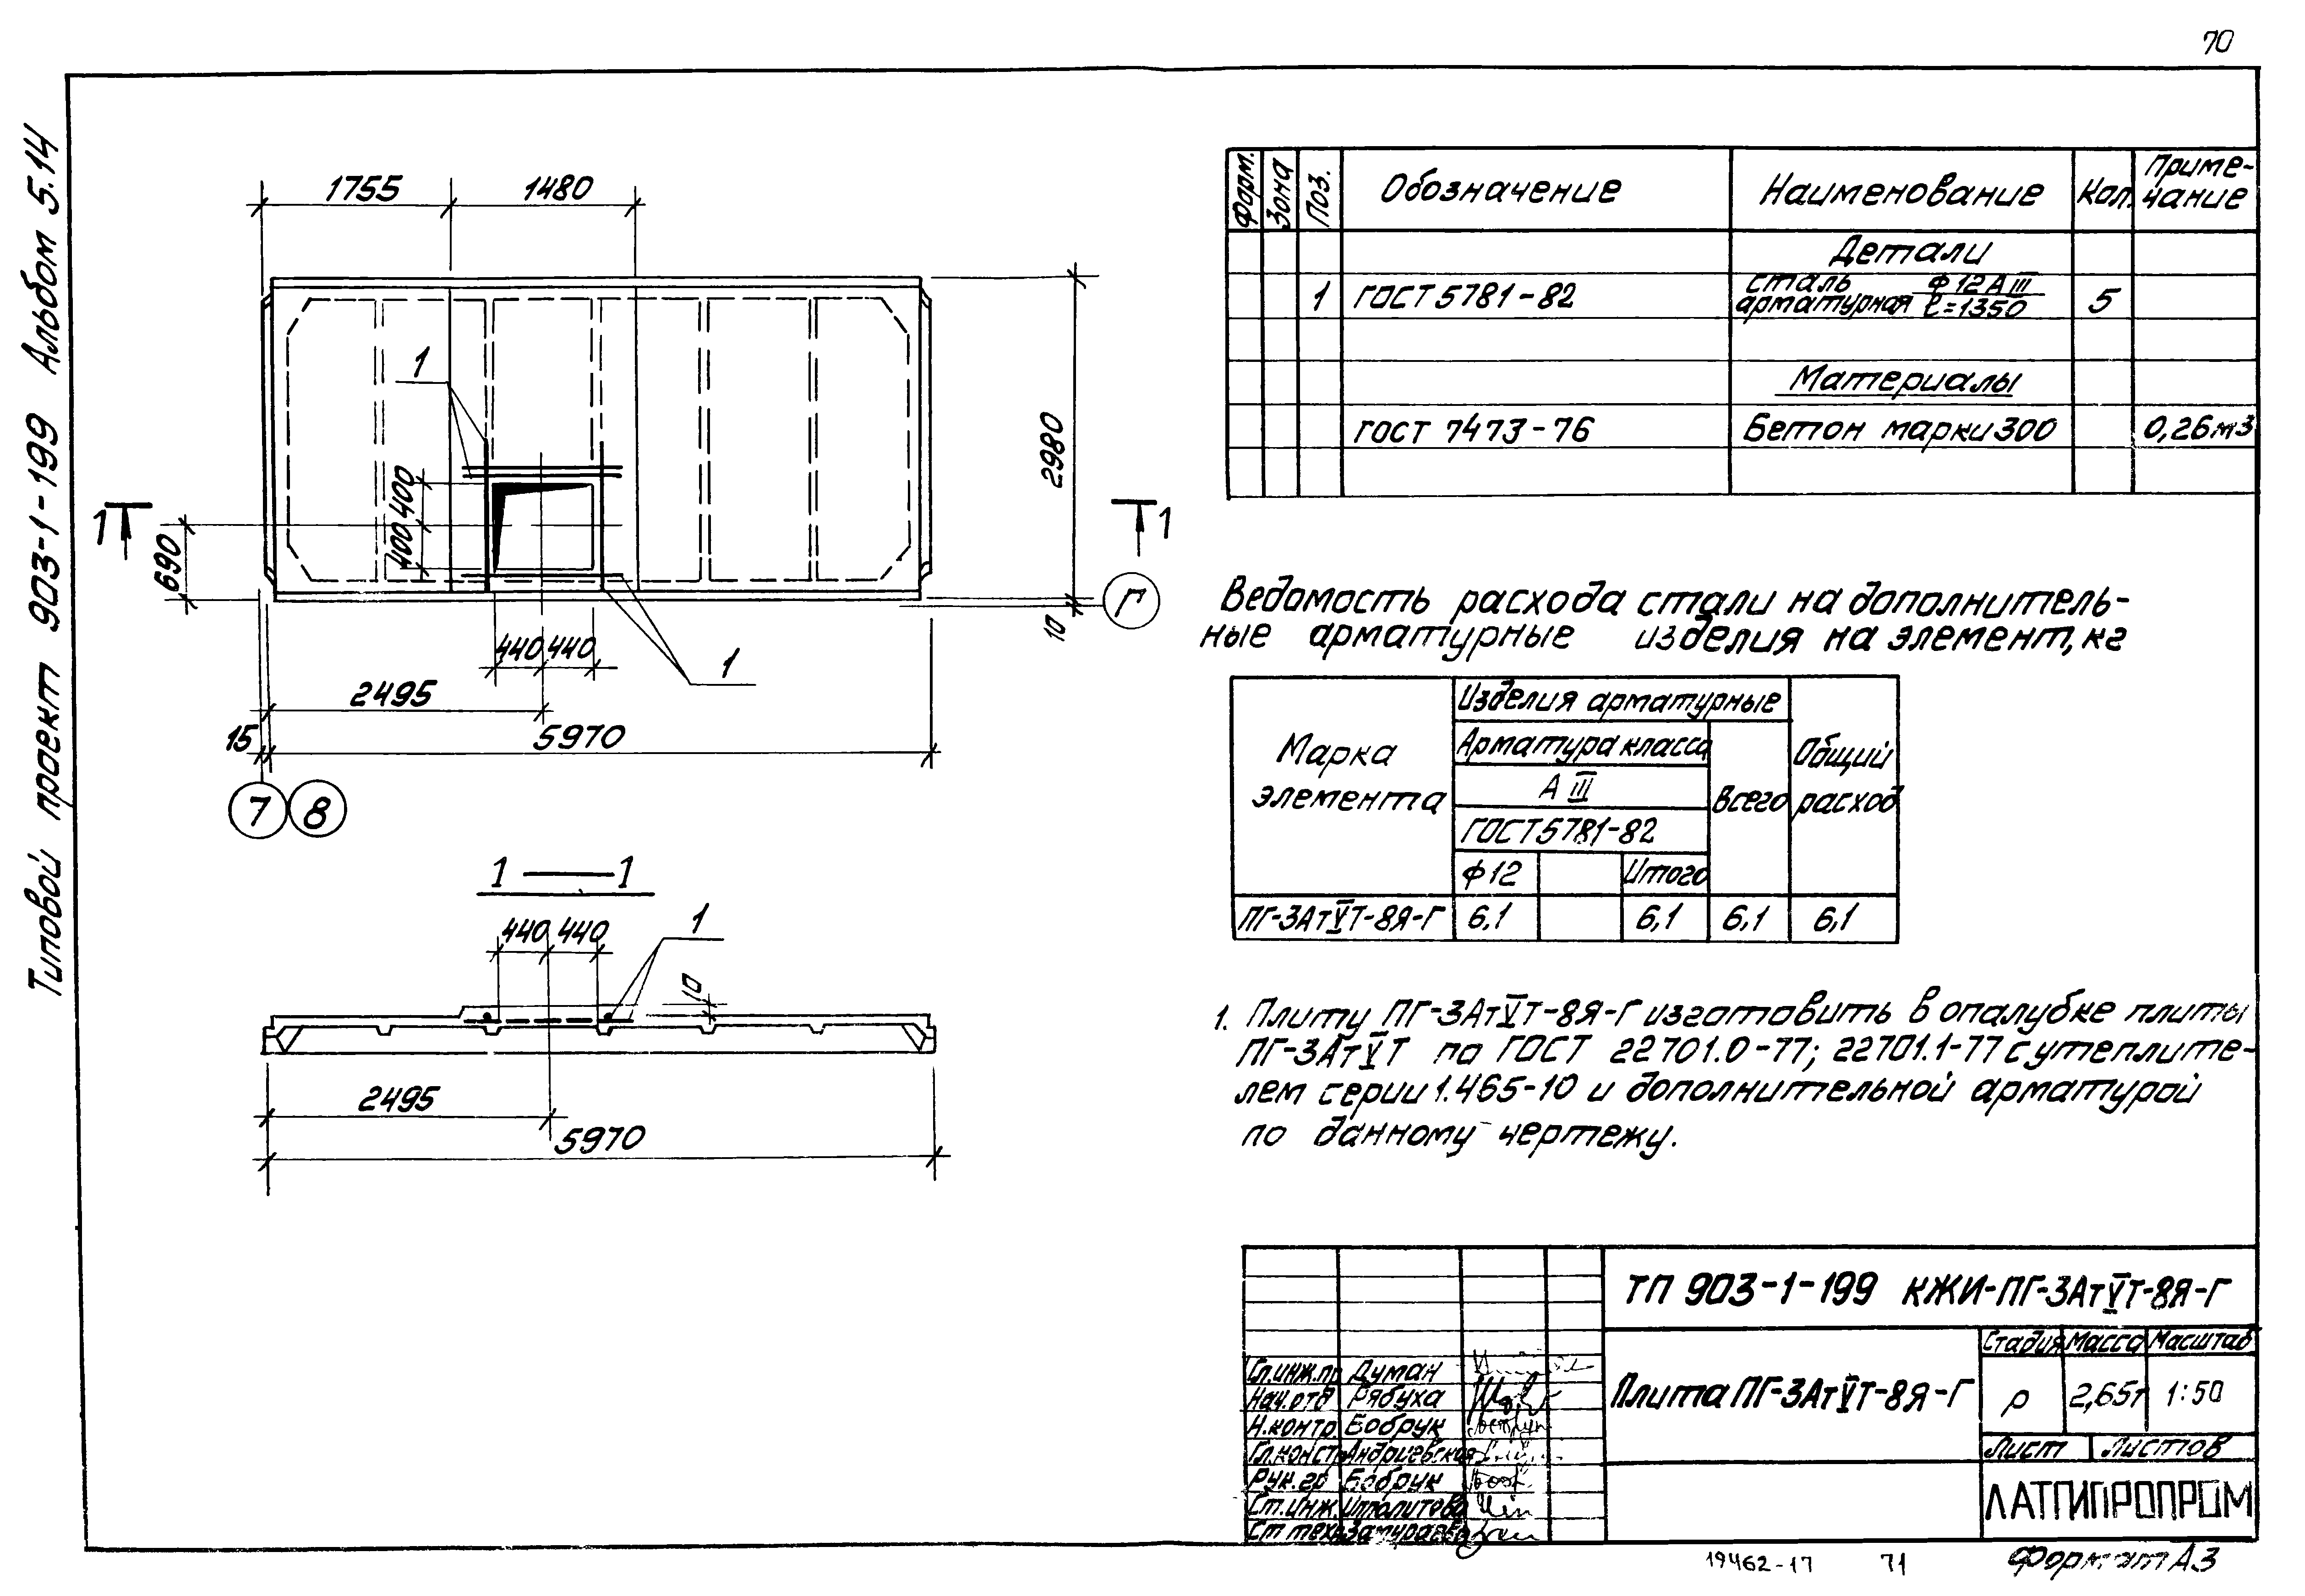 70
Типовой проект 903-1-199 Альбом 5.14
1755
1480
1
400
400
690
1
1
2980
10
Г
440 440
1
2495
15
5970
7
8
1 — 1
440 440
1
10
2495
5970
Форм.
Зона
Поз.
Обозначение
Наименование
Кол.
Приме-
чание
Детали
1
ГОСТ 5781-82
сталь ф12АIII
арматурная l=1350
5
Материалы
ГОСТ 7473-76
Бетон марки 300
0,26м3
Ведомость расхода стали на дополнитель-
ные арматурные изделия на элемент, кг
Марка
элемента
Изделия арматурные
Арматура класса
А III
ГОСТ 5781-82
ф12
Итого
Всего
Общий
расход
ПГ-3АтVТ-8Я-Г
6,1
6,1
6,1
6,1
1. Плиту ПГ-3АтVТ-8Я-Г изготовить в опалубке плиты
ПГ-3АтVТ по ГОСТ 22701.0-77; 22701.1-77 с утеплите-
лем серии 1.465-10 и дополнительной арматурой
по данному чертежу.
ТП 903-1-199 КЖИ-ПГ-3АтVТ-8Я-Г
Плита ПГ-3АтVТ-8Я-Г
Стадия
Масса
Масштаб
р
2,65т
1:50
Лист
Листов
ЛАТГИПРОПРОМ
Гл.инж.пр Думан
Нач.отд Рябуха
Н.контр Бобрук
Гл.констр Андриевская
Рук.гр Бобрук
Ст.инж. Ипполитова
Ст техн
19462-17
71
Формат А3